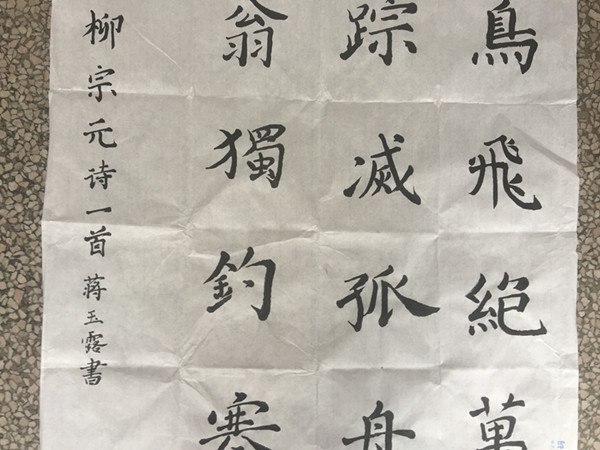 鳥飛絕萬
踪滅孤舟
翁獨釣寒
柳宗元诗一首蒋玉露書